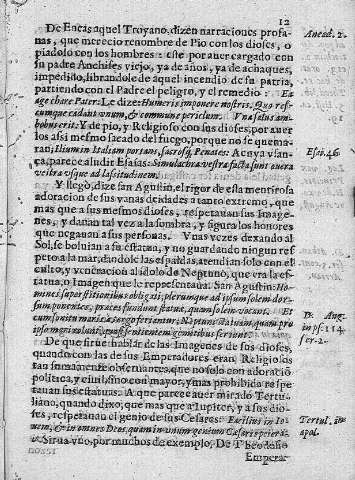 12
De Eneas aquel Troyano, dizen narraciones profa-
nas, que merecio renombre de Pio con los dioses, o
piadoso con los hombres: este por auer cargado con
su padre Anchises viejo, ya de años, y a de achaques,
impedido, librandole de aquel incendio de su patria,
partiendo con el Padre el peligro, y el remedio: Ea
age chare Pater: Le dize: Humeris imponere nostris. Quo res
cumque cadant vnum, & commune periclum. Vna salus am-
bobus erit: Y de pio, y Religioso con sus dioses, por auer
los assi mesmo sacado del fuego, porque no se quema-
ran; Ilium in Italiam portans, sacrosq. Penates: A cuya vsan-
ça, parece aludir Esaias: Simulachra vestra facta sunt onera
vestra vsque ad lassitudinem.
Y llegó, dize san Agustin, el rigor de esta mentirosa
adoracion de sus vanas deidades a tanto extremo, que
mas que a sus mesmos dioses, respetauan sus Image-
nes, y dauan tal vez a la sombra, y figura los honores
que negauan a sus personas. Vnas vezes dexando al
Sol, se boluian a su estatua, y no guardando ningun res-
peto a la mar, dandole las espaldas, atendian solo con el
culto, y veneracion al idolo de Neptuno, que era la es-
tatua, o Imagen que le representaua. San Agustin: Ho-
mines superstitionibus obligati, plerumque ad ipsum solem dor-
sum ponentes, preces fundunt statuæ, quam solem vocant. Et
cum sonitu maris à tergo feriantur; Neptuni statuam, quam pro
ipso mari colunt, quasi sentientem gemitibus feriunt.
De que sirue hablar de las Imagenes de sus dioses,
quando con las de sus Emperadores eran Religiosos
tan sumamente obseruantes, que no solo con adoracion
politica, y ciuil, sino con mayor, y mas prohibida respe-
tauan sus estatuas. A que parece auer mirado Tertu-
liano, quando dixo; que mas que a Iupiter, y a sus dio-
ses, respetauan el genio de sus Cesares:
Sirua vno, por muchos de exemplo. De Theodosio
Empera-
Aneid. 2.
Esai. 46.
D. Aug.
in ps. 114.
ser. 2.
Tertul. in
apol.